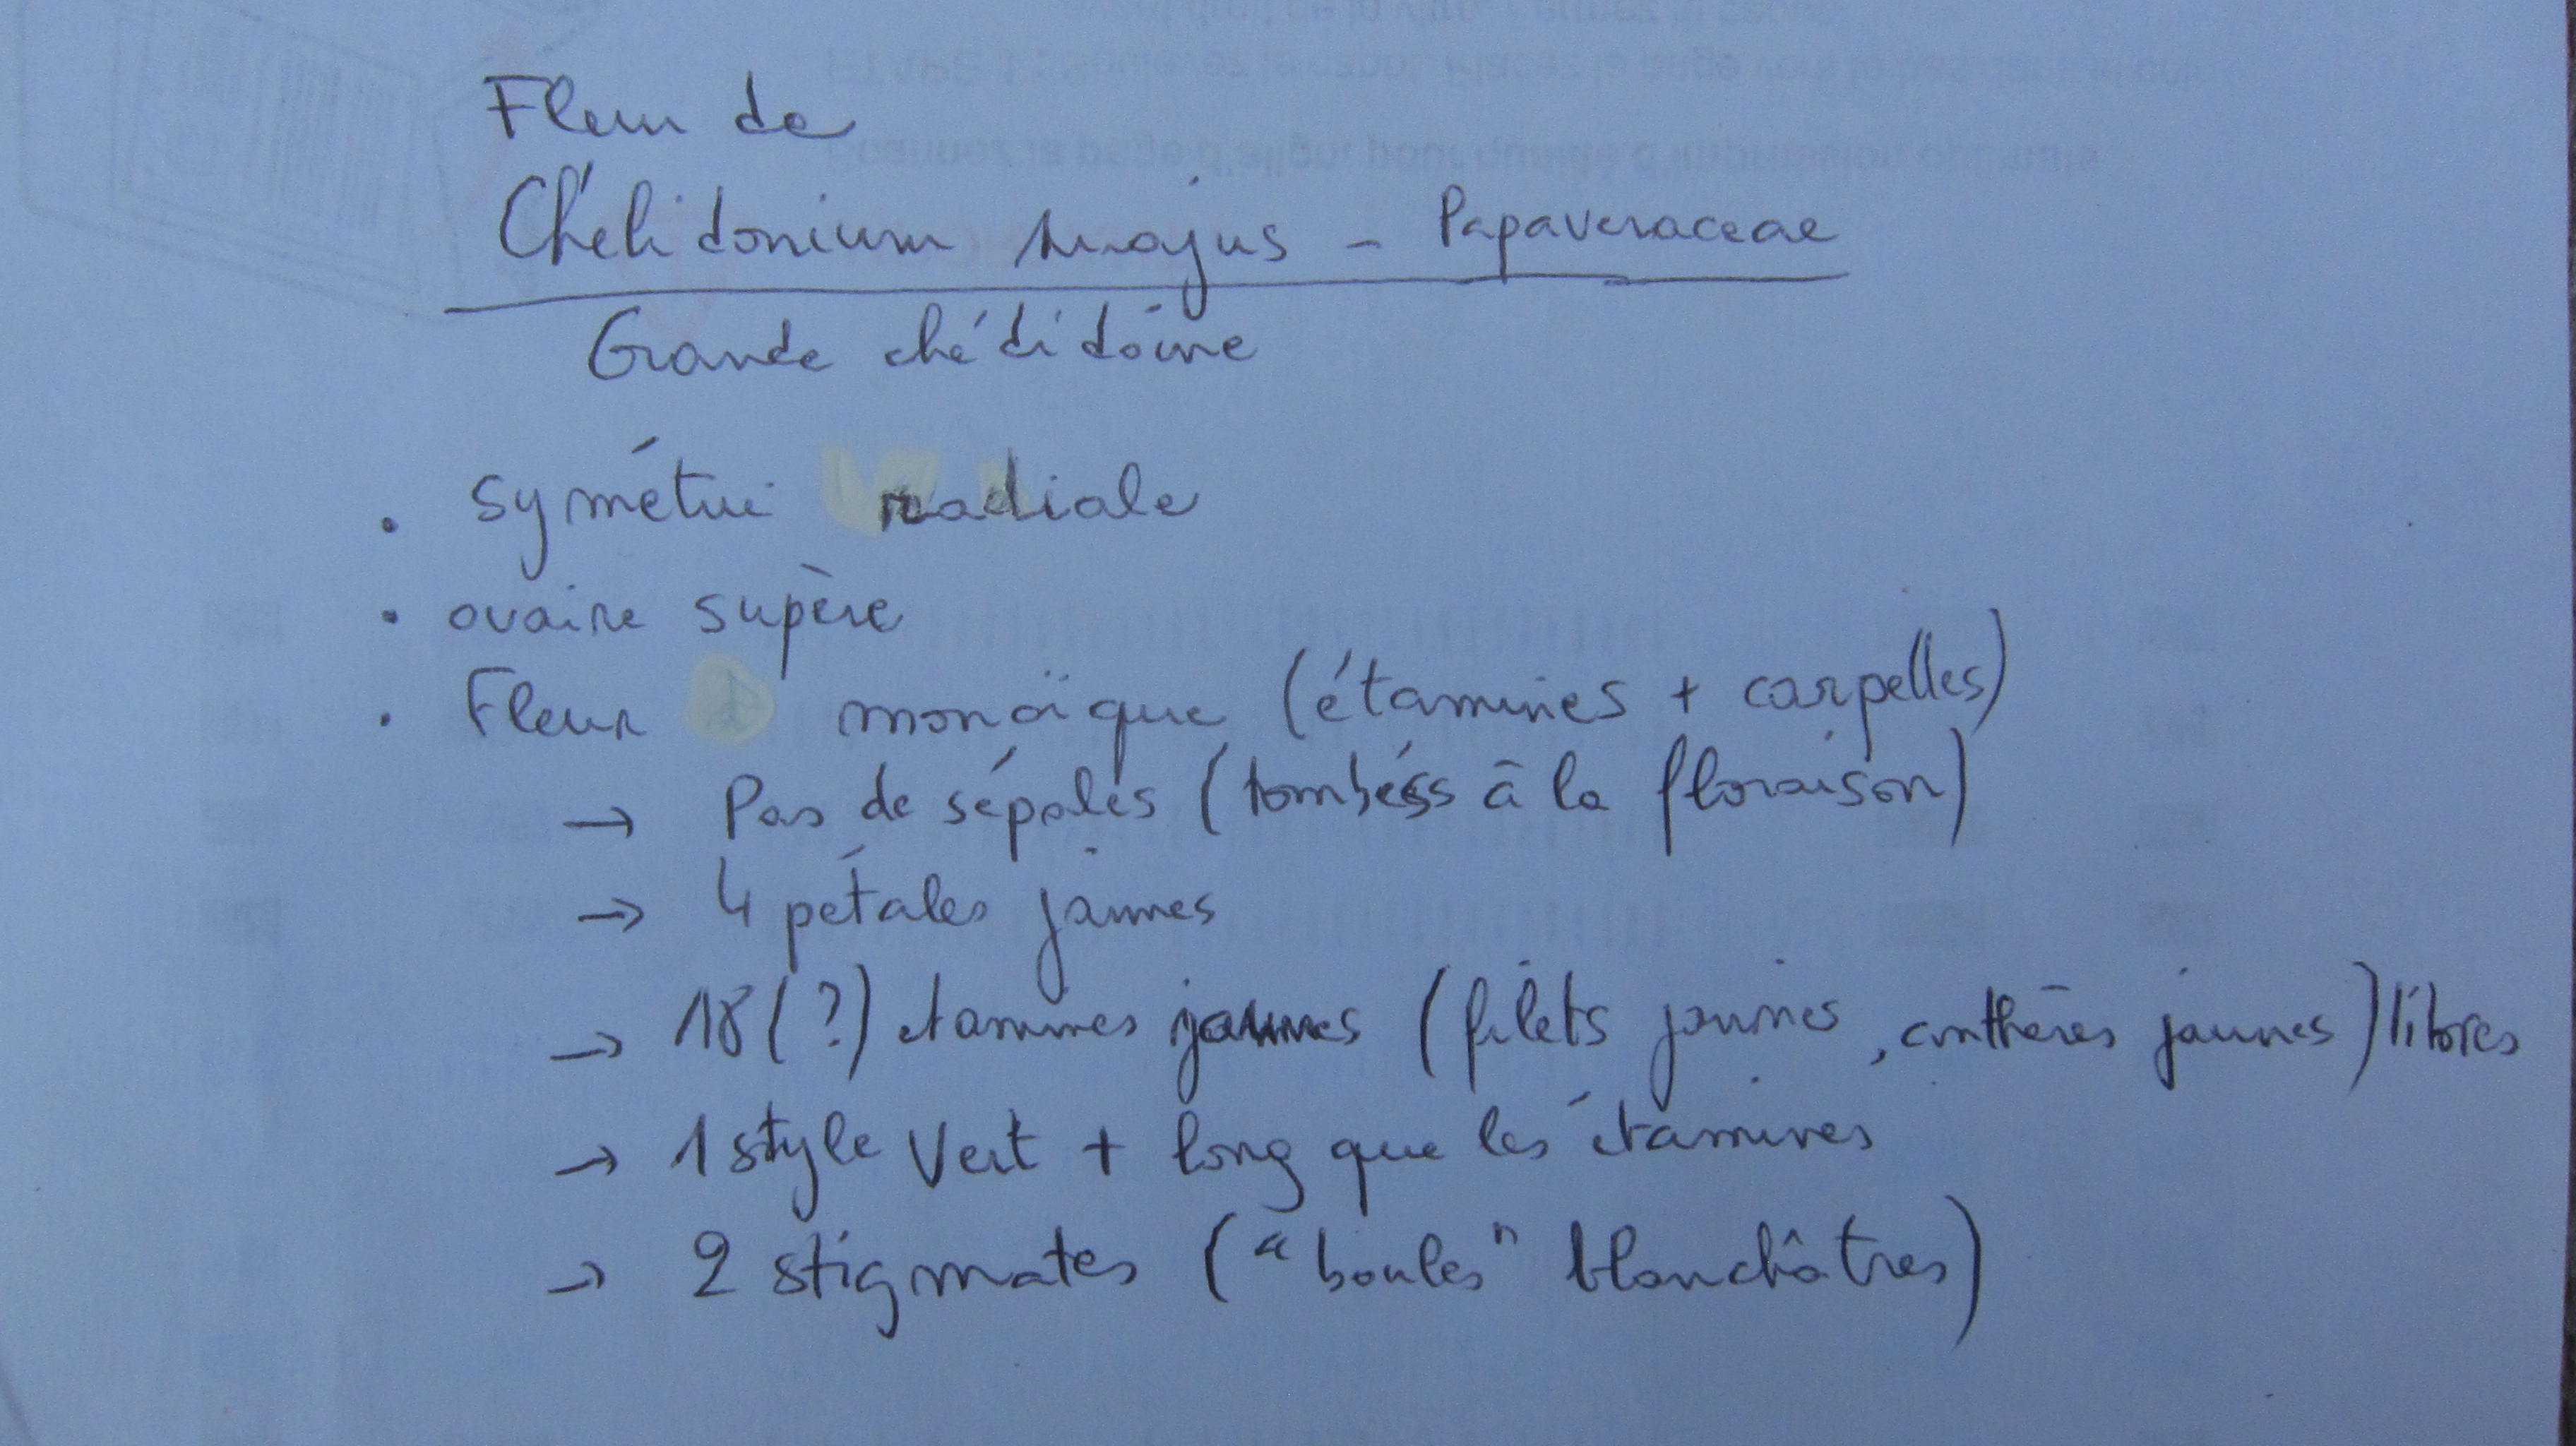 Fleur de
Chélidonium majus - Papaveraceae
Grande chédidoine
. symétrie radiale
. ovaire supère
. Fleur monoïque (étamines + carpelles)
→ Pas de sépales (tombés à la floraison)
→ 4 pétales jaunes
→ 18 (?) étamines jaunes (filets jaunes, anthères jaunes) libres
→ 1 style vert + long que les étamines
→ 2 stigmates ("boules" blanchâtres)